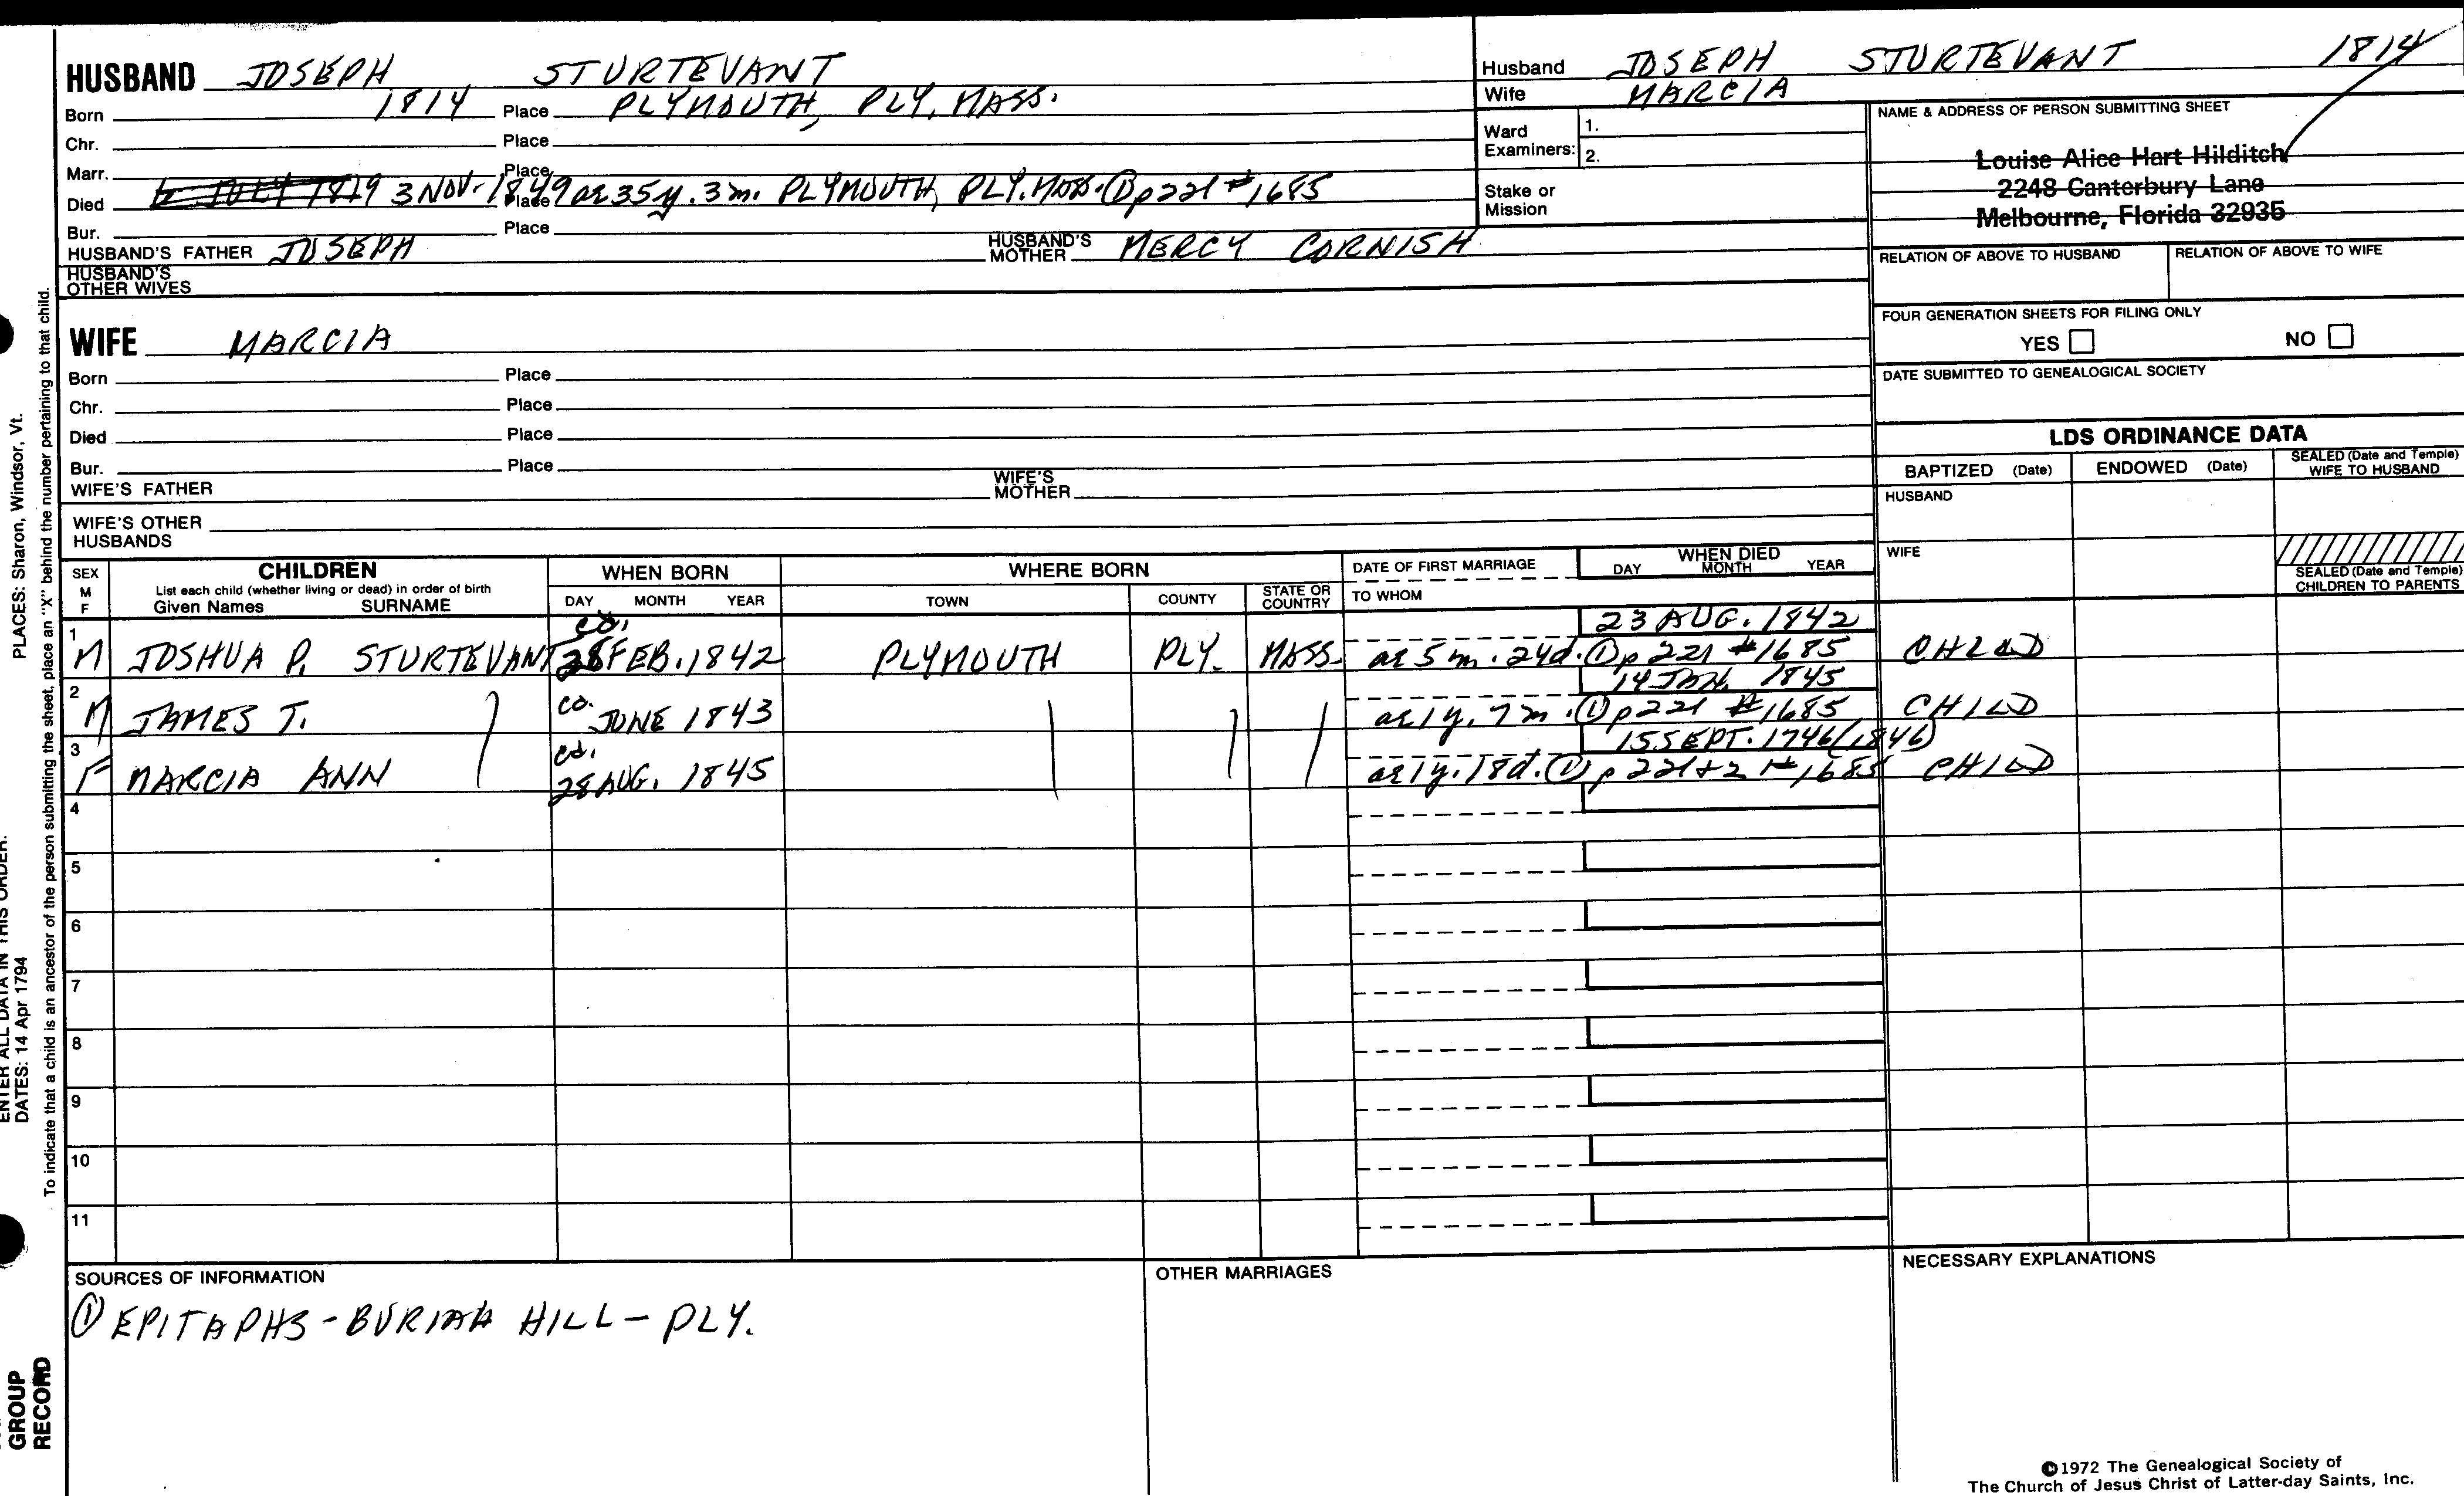 HUSBAND JOSEPH STURTEVANT
Born 1814 Place PLYMOUTH, PLY, MASS.
Chr. Place
Marr. Place
Died 3 NOV. 1849 ae 35y. 3m. Place PLYMOUTH, PLY. MASS. ① p221 #1685
Bur. Place
HUSBAND'S FATHER JOSEPH HUSBAND'S MOTHER MERCY CORNISH
HUSBAND'S OTHER WIVES
Husband JOSEPH STURTEVANT 1814
Wife MARCIA
Ward Examiners: 1.
2.
Stake or Mission
NAME & ADDRESS OF PERSON SUBMITTING SHEET
Louise Alice Hart Hilditch
2248 Canterbury Lane
Melbourne, Florida 32935
RELATION OF ABOVE TO HUSBAND RELATION OF ABOVE TO WIFE
FOUR GENERATION SHEETS FOR FILING ONLY
YES NO
DATE SUBMITTED TO GENEALOGICAL SOCIETY
WIFE MARCIA
Born Place
Chr. Place
Died Place
Bur. Place
WIFE'S FATHER WIFE'S MOTHER
WIFE'S OTHER HUSBANDS
LDS ORDINANCE DATA
BAPTIZED (Date) ENDOWED (Date) SEALED (Date and Temple) WIFE TO HUSBAND
HUSBAND
WIFE
SEALED (Date and Temple) CHILDREN TO PARENTS
SEX M F
CHILDREN
List each child (whether living or dead) in order of birth
Given Names SURNAME
WHEN BORN
DAY MONTH YEAR
WHERE BORN
TOWN COUNTY STATE OR COUNTRY
DATE OF FIRST MARRIAGE
TO WHOM
WHEN DIED
DAY MONTH YEAR
1 M JOSHUA P. STURTEVANT ca. 28 FEB. 1842 PLYMOUTH PLY. MASS. 23 AUG. 1842
ae 5m. 24d. ① p221 #1685 CHILD
2 M JAMES T. ca. JUNE 1843 14 JAN. 1845
ae 1y. 7m. ① p221 #1685 CHILD
3 F MARCIA ANN ca. 28 AUG. 1845 15 SEPT. 1746/(1846)
ae 1y. 18d. ① p221+2 #1685 CHILD
4
5
6
7
8
9
10
11
SOURCES OF INFORMATION
① EPITAPHS - BURIAL HILL - PLY.
OTHER MARRIAGES
NECESSARY EXPLANATIONS
©1972 The Genealogical Society of
The Church of Jesus Christ of Latter-day Saints, Inc.
PLACES: Sharon, Windsor, Vt.
ENTER ALL DATA IN THIS ORDER:
DATES: 14 Apr 1794
To indicate that a child is an ancestor of the person submitting the sheet, place an "X" behind the number pertaining to that child.
GROUP
RECORD